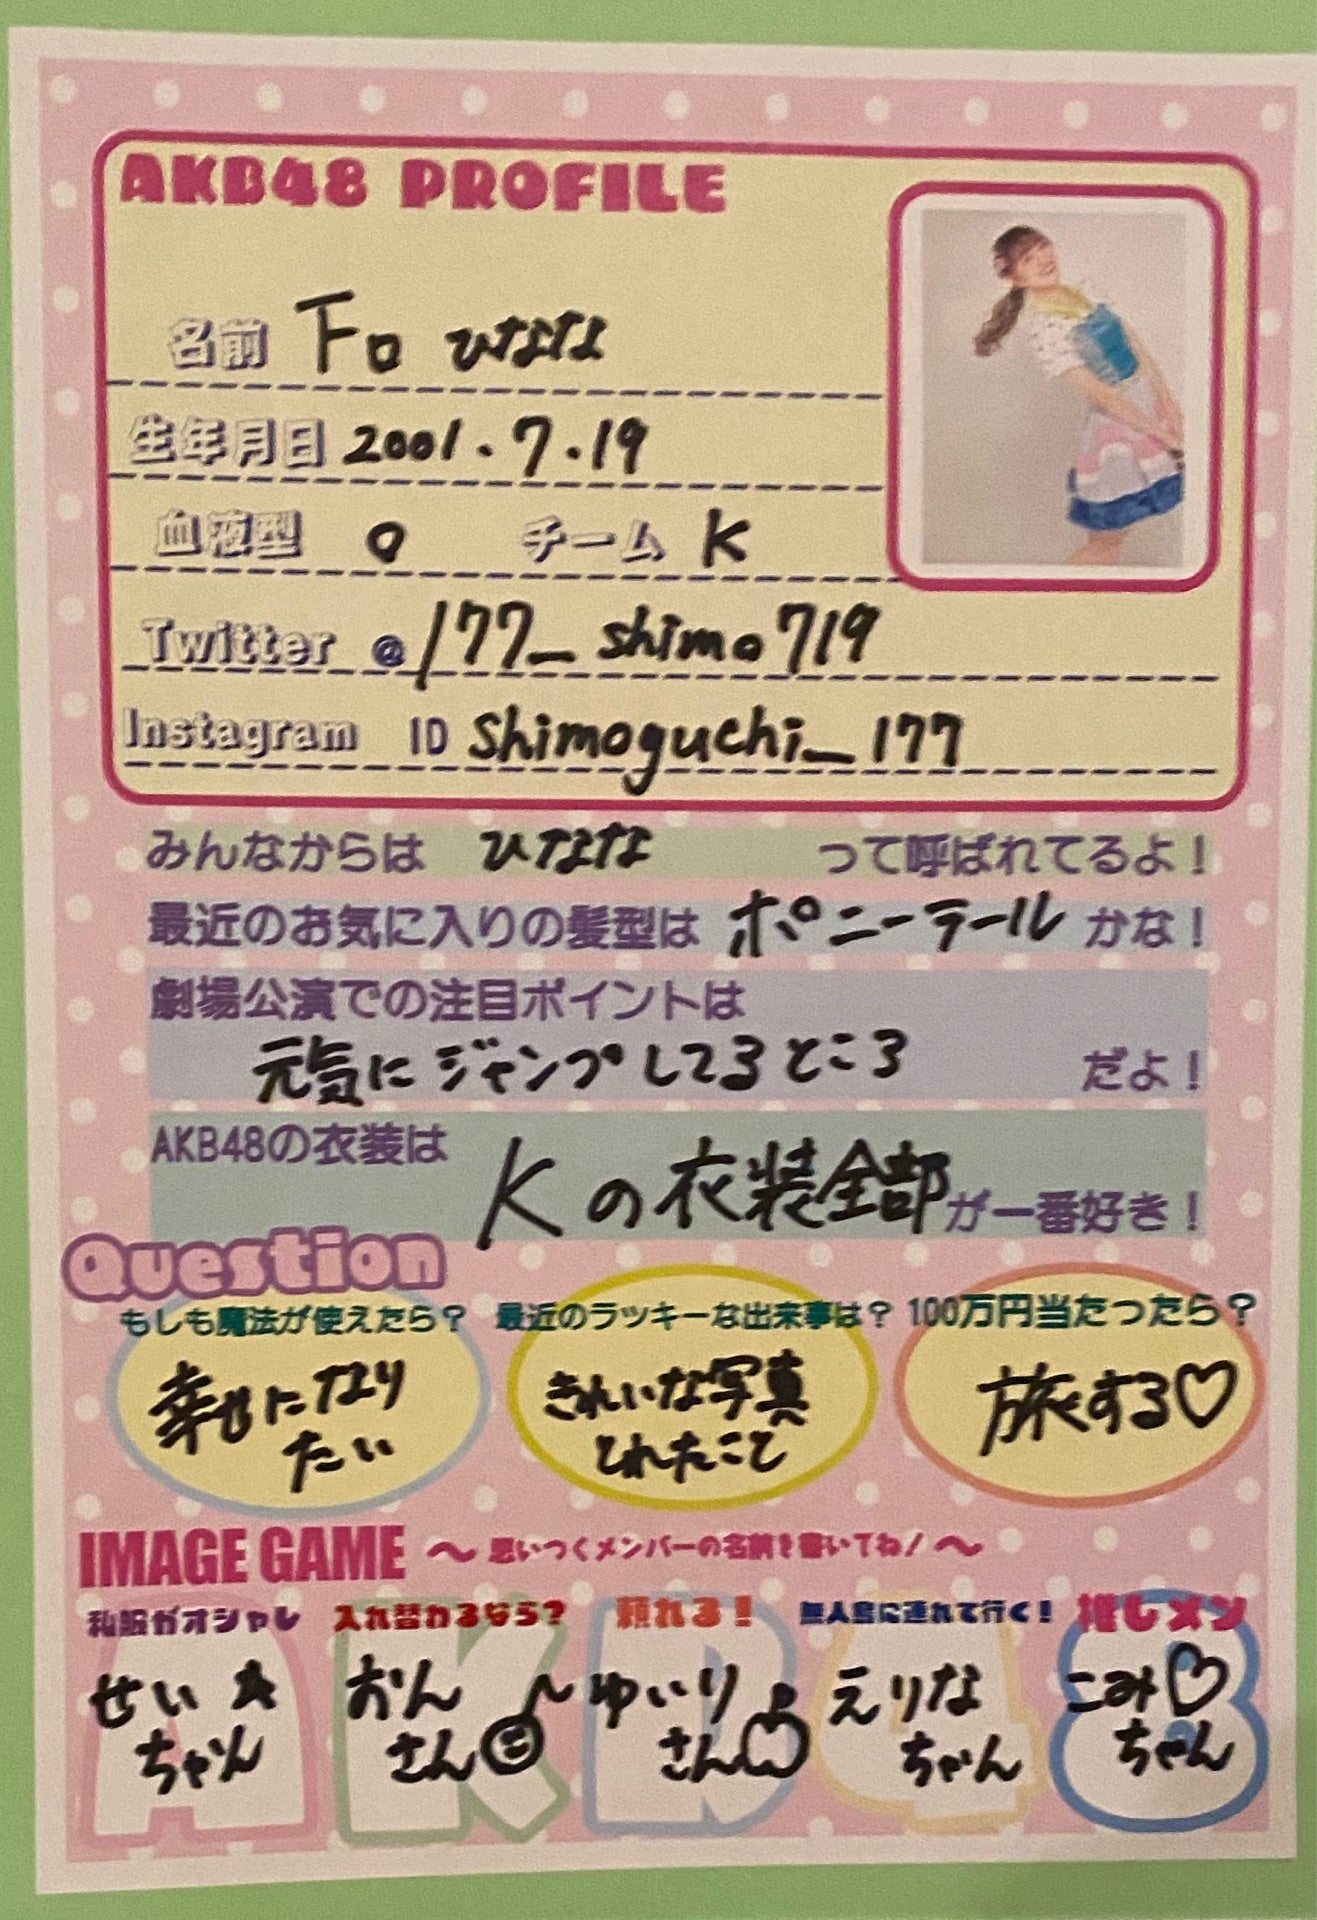 AKB48 PROFILE
名前 下口 ひなな
生年月日 2001.7.19
血液型 O チーム K
Twitter @177_shimo719
Instagram ID shimoguchi_177
みんなからは ひなな って呼ばれてるよ!
最近のお気に入りの髪型は ポニーテール かな!
劇場公演での注目ポイントは
元気にジャンプしてるところ だよ!
AKB48の衣装は
Kの衣装全部 が一番好き!
Question
もしも魔法が使えたら?
幸せになり
たい
最近のラッキーな出来事は?
きれいな写真
とれたこと
100万円当たったら?
旅する♡
IMAGE GAME ~思いつくメンバーの名前を書いてね!~
私服がオシャレ
せい★
ちゃん
入れ替わるなら?
おん
さん
頼れる!
ゆいり
さん
無人島に連れて行く!
えりな
ちゃん
推しメン
こみ♡
ちゃん
AKB48